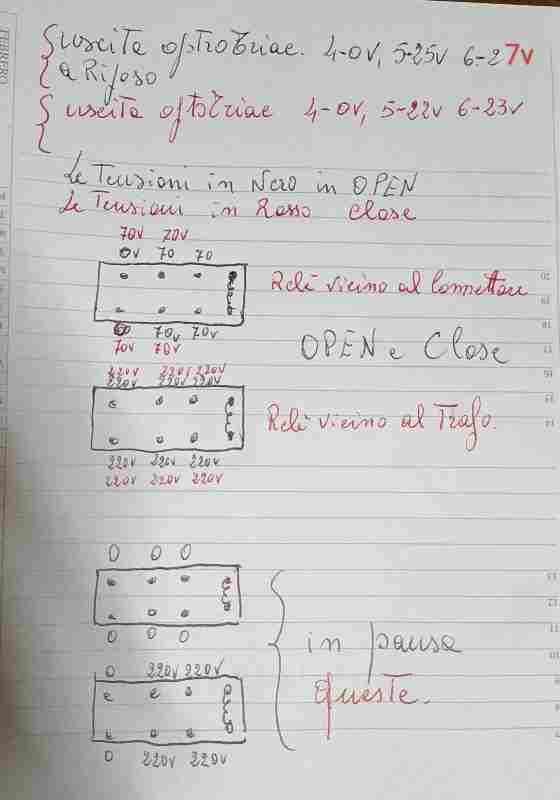 FEBBRERO
uscita optotriac. 4-0V, 5-25V 6-27V
a Riposo
uscita optotriac 4-0V, 5-22V 6-23V
Le Tensioni in Nero in OPEN
Le Tensioni in Rosso Close
70V 70V
0V 70 70
Relè vicino al Connettore
70V 70V
70V 70V
OPEN e Close
220V 220V 220V
220V 220V 220V
Relè vicino al Trafo.
220V 220V 220V
220V 220V 220V
0 0 0
0 0 0
in pausa
0 220V 220V
queste.
0 220V 220V